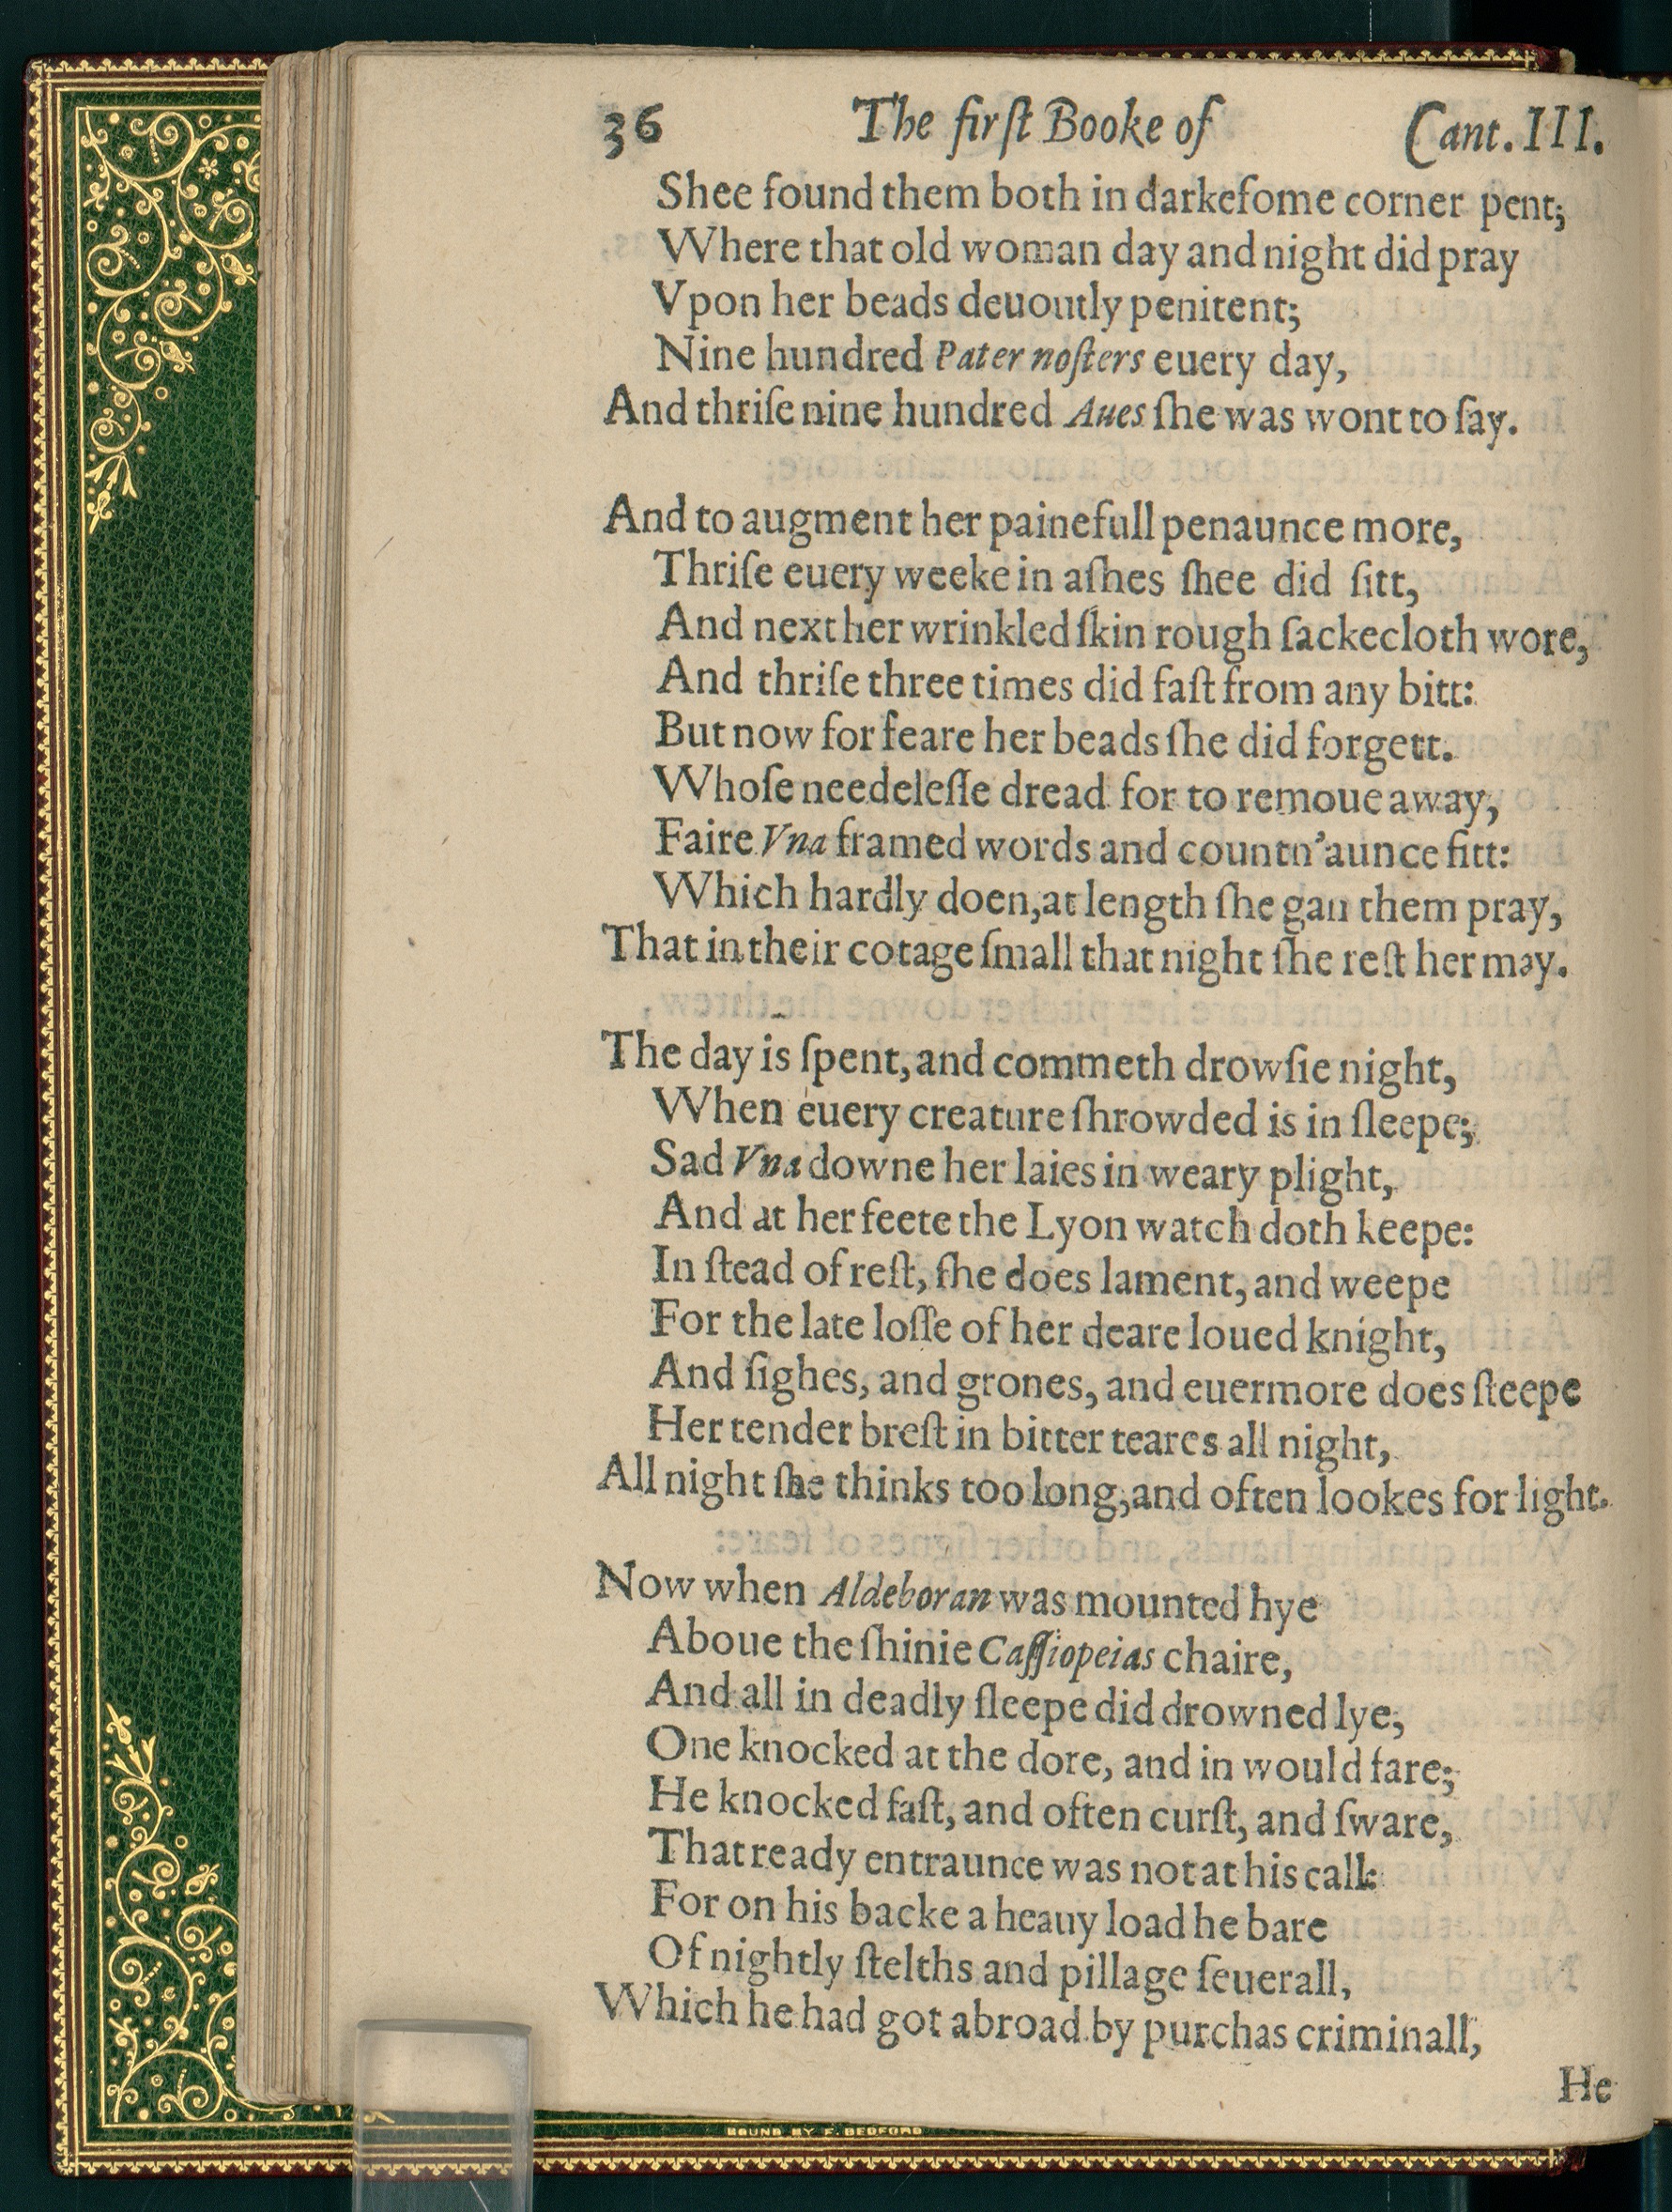 36 The firſt Booke of Cant. III.
Shee found them both in darkeſome corner pent;
Where that old woman day and night did pray
Vpon her beads deuoutly penitent;
Nine hundred Pater noſters euery day,
And thriſe nine hundred Aues ſhe was wont to ſay.
And to augment her painefull penaunce more,
Thriſe euery weeke in aſhes ſhee did ſitt,
And next her wrinkled ſkin rough ſackecloth wore,
And thriſe three times did faſt from any bitt:
But now for feare her beads ſhe did forgett.
Whoſe needeleſſe dread for to remoue away,
Faire Vna framed words and countn'aunce fitt:
Which hardly doen, at length ſhe gan them pray,
That in their cotage ſmall that night ſhe reſt her may.
The day is ſpent, and commeth drowſie night,
When euery creature ſhrowded is in ſleepe;
Sad Vna downe her laies in weary plight,
And at her feete the Lyon watch doth keepe:
In ſtead of reſt, ſhe does lament, and weepe
For the late loſſe of her deare loued knight,
And ſighes, and grones, and euermore does ſteepe
Her tender breſt in bitter teares all night,
All night ſhe thinks too long, and often lookes for light.
Now when Aldeboran was mounted hye
Aboue the ſhinie Caſſiopeias chaire,
And all in deadly ſleepe did drowned lye,
One knocked at the dore, and in would fare;
He knocked faſt, and often curſt, and ſware,
That ready entraunce was not at his call:
For on his backe a heauy load he bare
Of nightly ſtelths and pillage ſeuerall,
Which he had got abroad by purchas criminall,
He
BOUND BY F. BEDFORD